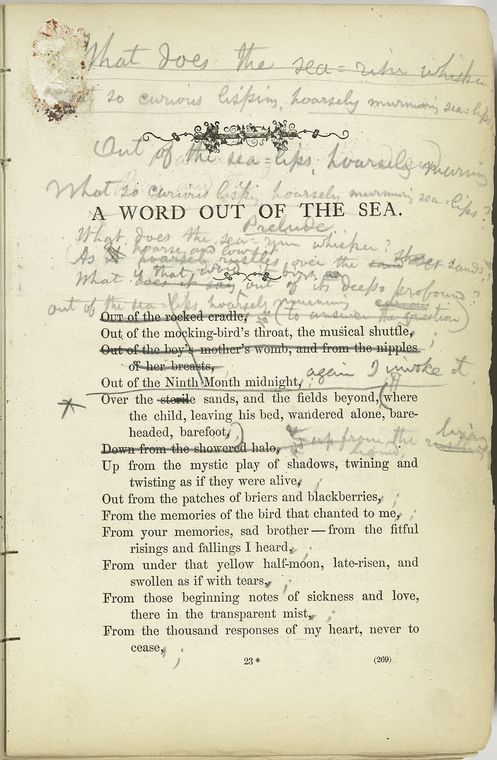 What does the sea-rim whisper
so curious lisping, hoarsely murmuring sea-lips
Out of the sea-lips, hoarsely murmuring
What so curious lisp, hoarsely murmuring sea-lips?
A WORD OUT OF THE SEA.
Prelude
What does the sea-rim whisper?
As hoarse and rustles over the sands?
What is that word out of its deeps profound?
out of the sea-lips hoarsely murmuring
OUT of the rocked cradle, (to answer the question)
Out of the mocking-bird's throat, the musical shuttle,
Out of the boy's mother's womb, and from the nipples
of her breasts,
Out of the Ninth Month midnight, again I invoke it,
Over the sterile sands, and the fields beyond, (where
the child, leaving his bed, wandered alone, bare-
headed, barefoot,)
Down from the showered halo, up from the
Up from the mystic play of shadows, twining and
twisting as if they were alive, ;
Out from the patches of briers and blackberries, ;
From the memories of the bird that chanted to me, ;
From your memories, sad brother — from the fitful
risings and fallings I heard, ;
From under that yellow half-moon, late-risen, and
swollen as if with tears, ;
From those beginning notes of sickness and love,
there in the transparent mist, ;
From the thousand responses of my heart, never to
cease, ;
23* (269)